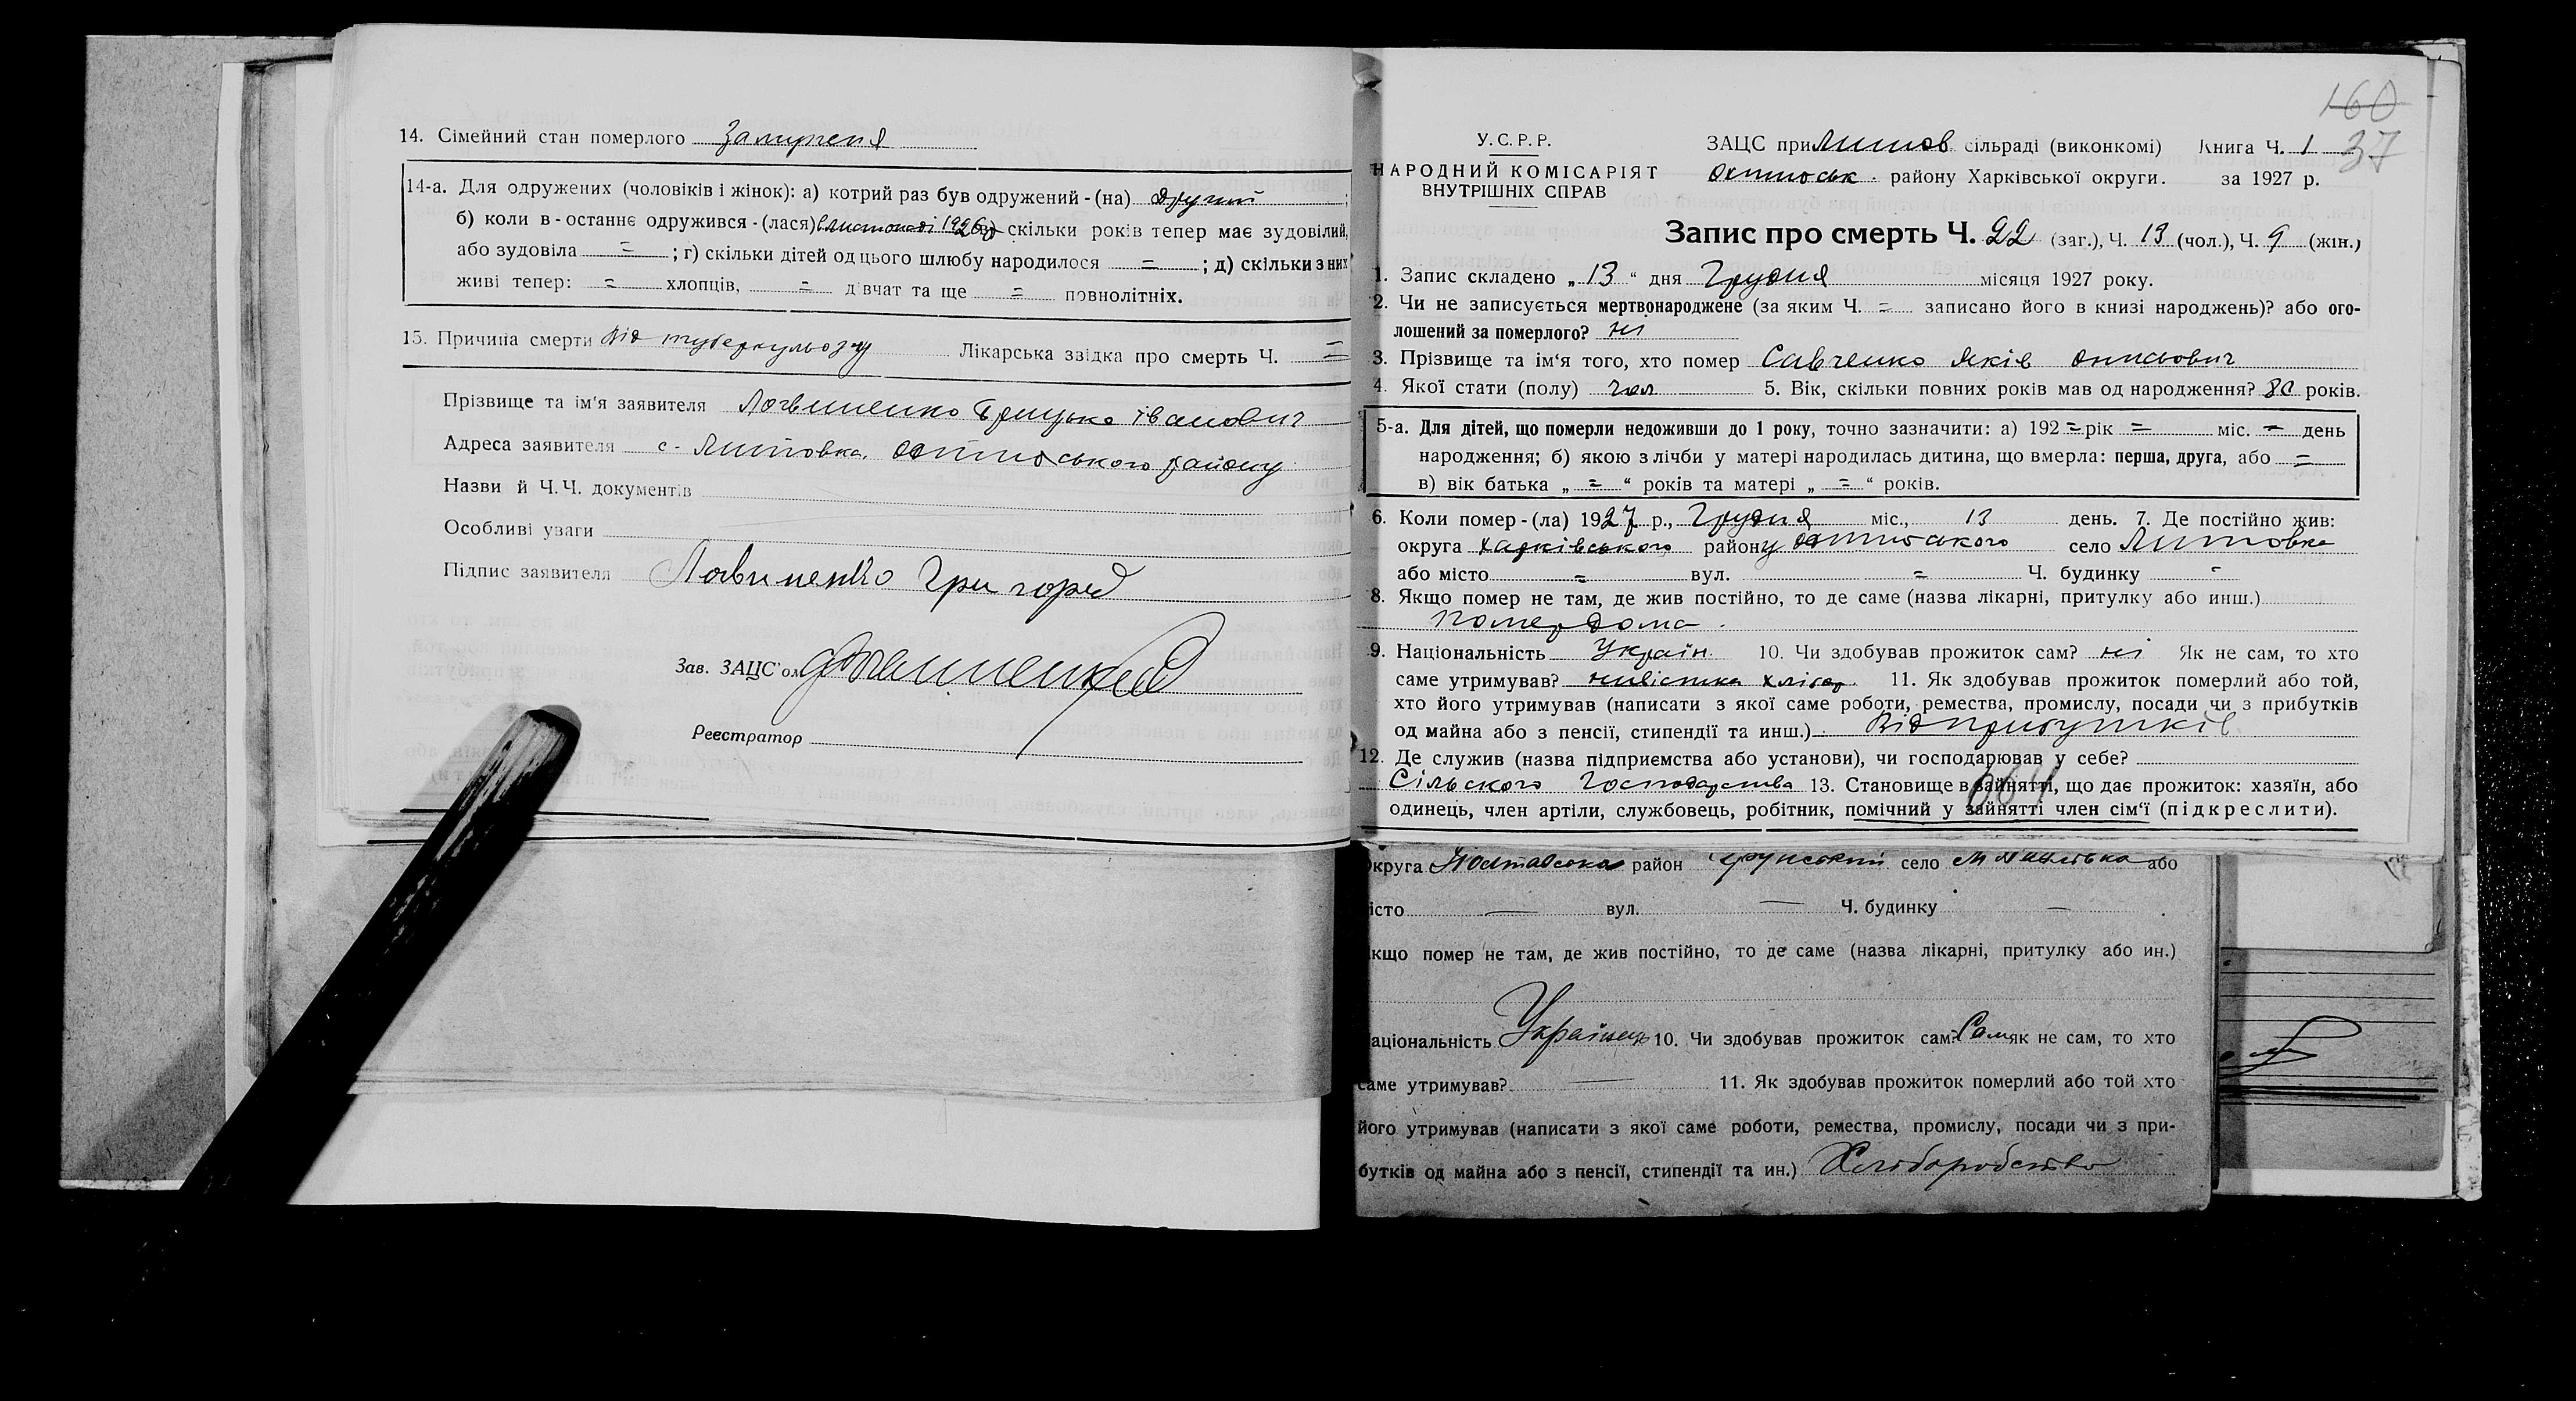 14. Сімейний стан померлого
14-а. Для одружених (чоловіків і жінок): а) котрий раз був одружений - (на) другий ;
б) коли в - останнє одружився - (лася) в листопаді 1926 р в) скільки років тепер має зудовілий,
або зудовіла = ; г) скільки дітей од цього шлюбу народилося = ; д) скільки з них
живі тепер: = хлопців, = дівчат та ще = повнолітніх.
15. Причина смерти Від туберкульозу Лікарська звідка про смерть Ч. =
Прізвище та ім'я заявителя Логвиненко Грицько Іванович
Адреса заявителя с - Липовка,  району
Назви й Ч.Ч. документів
Особливі уваги
Підпис заявителя Логвиненко Григорій
Зав. ЗАЦС'ом
Реєстратор
160
37
У.С.Р.Р.
НАРОДНИЙ КОМІСАРІЯТ
ВНУТРІШНІХ СПРАВ
ЗАЦС при сільраді (виконкомі) Книга Ч. 1
району Харківської округи. за 1927 р.
Запис про смерть Ч. 22 (заг.), Ч. 13 (чол.), Ч. 9 (жін.)
1. Запис складено „ 13 “ дня Грудня місяця 1927 року.
2. Чи не записується мертвонароджене (за яким Ч. = записано його в книзі народжень)? або ого-
лошений за померлого? ні
3. Прізвище та ім'я того, хто помер Савченко Яків
4. Якої стати (полу) чол 5. Вік, скільки повних років мав од народження? 80 років.
5-а. Для дітей, що померли недоживши до 1 року, точно зазначити: а) 192 = рік = міс. = день
народження; б) якою з лічби у матері народилась дитина, що вмерла: перша, друга, або =
в) вік батька „ = “ років та матері „ = “ років.
6. Коли помер - (ла) 1927 р., Грудня міс., 13 день. 7. Де постійно жив:
округа Харківського району село
або місто = вул. = Ч. будинку -
8. Якщо помер не там, де жив постійно, то де саме (назва лікарні, притулку або инш.)
Помер дома.
9. Національність Україн. 10. Чи здобував прожиток сам? ні Як не сам, то хто
саме утримував? невістка хлібор. 11. Як здобував прожиток померлий або той,
хто його утримував (написати з якої саме роботи, ремества, промислу, посади чи з прибутків
од майна або з пенсії, стипендії та инш.) Від прибутків
12. Де служив (назва підприємства або установи), чи господарював у себе?
Сільського Господарства 13. Становище в зайнятті, що дає прожиток: хазяїн, або
одинець, член артіли, службовець, робітник, помічний у зайнятті член сім'ї (підкреслити).
округа Полтавська район село або
місто — вул. — Ч. будинку —
якщо помер не там, де жив постійно, то де саме (назва лікарні, притулку або ин.)
національність Українець 10. Чи здобував прожиток сам? Сам як не сам, то хто
саме утримував? — 11. Як здобував прожиток померлий або той хто
його утримував (написати з якої саме роботи, ремества, промислу, посади чи з при-
бутків од майна або з пенсії, стипендії та ин.) Хліборобство